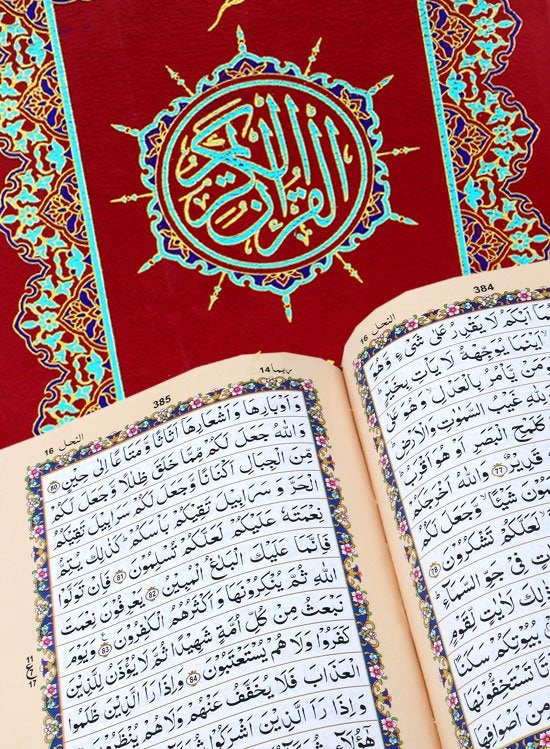 القرآن الكريم
384
النحل 16
اَبْكَمُ لَا يَقْدِرُ عَلٰى شَىْءٍ وَّهُوَ
اَيْنَمَا يُوَجِّهْهُّ لَا يَاْتِ بِخَيْرٍ
مَنْ يَّاْمُرُ بِالْعَدْلِ وَهُوَ عَلٰى
غَيْبُ السَّمٰوٰتِ وَالْاَرْضِ
كَلَمْحِ الْبَصَرِ اَوْ هُوَ اَقْرَبُ
قَدِيْرٌ 77 وَاللّٰهُ اَخْرَجَكُمْ
شَيْـًٔا وَّجَعَلَ لَكُمُ
لَعَلَّكُمْ تَشْكُرُوْنَ 78
فِىْ جَوِّ السَّمَآءِ
ذٰلِكَ لَاٰيٰتٍ لِّقَوْمٍ
بُيُوْتِكُمْ سَكَنًا
تَسْتَخِفُّوْنَهَا
مِنْ اَصْوَافِهَا
ربما 14
385
النحل 16
وَ اَوْبَارِهَا وَ اَشْعَارِهَاۤ اَثَاثًا وَّ مَتَاعًا اِلٰى حِيْنٍ 80
وَاللّٰهُ جَعَلَ لَكُمْ مِّمَّا خَلَقَ ظِلٰلًا وَّ جَعَلَ لَكُمْ
مِّنَ الْجِبَالِ اَكْنَانًا وَّ جَعَلَ لَكُمْ سَرَابِيْلَ تَقِيْكُمُ
الْحَرَّ وَ سَرَابِيْلَ تَقِيْكُمْ بَاْسَكُمْ كَذٰلِكَ يُتِمُّ
نِعْمَتَهٗ عَلَيْكُمْ لَعَلَّكُمْ تُسْلِمُوْنَ 81 فَاِنْ تَوَلَّوْا
فَاِنَّمَا عَلَيْكَ الْبَلٰغُ الْمُبِيْنُ 82 يَعْرِفُوْنَ نِعْمَتَ
اللّٰهِ ثُمَّ يُنْكِرُوْنَهَا وَ اَكْثَرُهُمُ الْكٰفِرُوْنَ 83 وَ يَوْمَ
نَبْعَثُ مِنْ كُلِّ اُمَّةٍ شَهِيْدًا ثُمَّ لَا يُؤْذَنُ لِلَّذِيْنَ
كَفَرُوْا وَلَا هُمْ يُسْتَعْتَبُوْنَ 84 وَ اِذَا رَاَ الَّذِيْنَ ظَلَمُوا
الْعَذَابَ فَلَا يُخَفَّفُ عَنْهُمْ وَلَا هُمْ يُنْظَرُوْنَ
وَ اِذَا رَاَ الَّذِيْنَ اَشْرَكُوْا